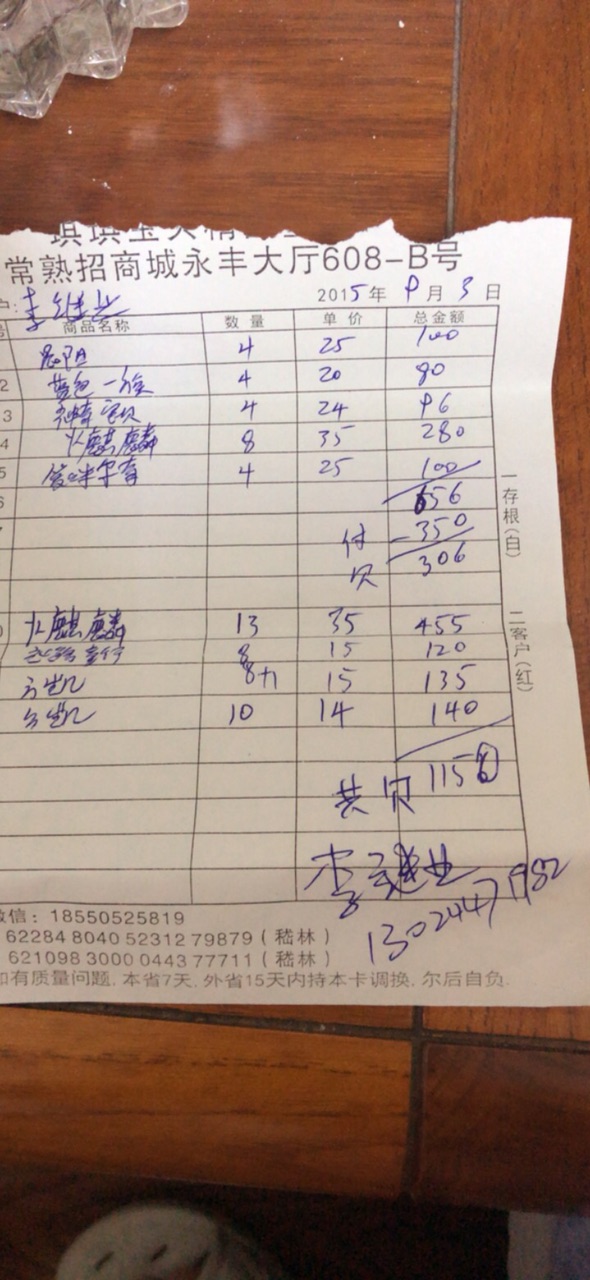 常熟招商城永丰大厅608-B号
李继业 2015年 9月 3日
商品名称 数量 单价 总金额
4 25 100
2 4 20 80
3 4 24 96
4 火麒麟 8 35 280
5 4 25 100
6 656
付 -350
欠 306
火麒麟 13 35 455
8 15 120
15 135
10 14 140
共欠 1156
李继业
13024471982
微信：18550525819
62284 8040 52312 79879（嵇林）
621098 3000 0443 77711（嵇林）
如有质量问题, 本省7天, 外省15天内持本卡调换, 尔后自负.
一存根(白)
二客户(红)